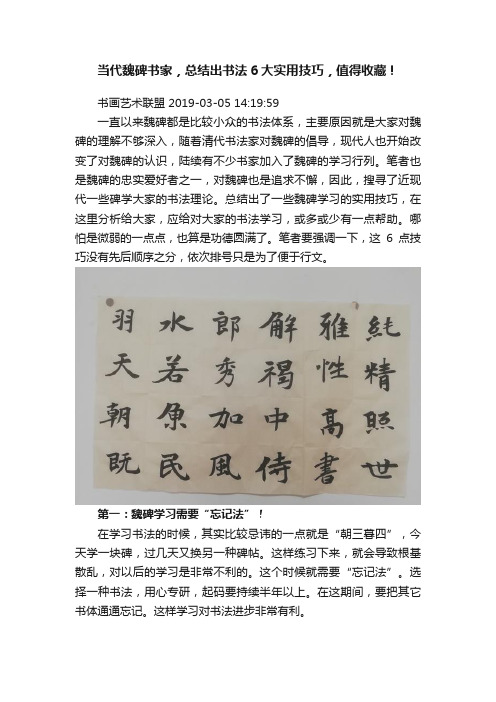 当代魏碑书家，总结出书法6大实用技巧，值得收藏！
书画艺术联盟 2019-03-05 14:19:59
一直以来魏碑都是比较小众的书法体系，主要原因就是大家对魏
碑的理解不够深入，随着清代书法家对魏碑的倡导，现代人也开始改
变了对魏碑的认识，陆续有不少书家加入了魏碑的学习行列。笔者也
是魏碑的忠实爱好者之一，对魏碑也是追求不懈，因此，搜寻了近现
代一些碑学大家的书法理论。总结出了一些魏碑学习的实用技巧，在
这里分析给大家，应给对大家的书法学习，或多或少有一点帮助。哪
怕是微弱的一点点，也算是功德圆满了。笔者要强调一下，这 6 点技
巧没有先后顺序之分，依次排号只是为了便于行文。
純精照世
雅性高書
解褐中侍
郎秀加風
水若原民
羽天朝既
第一：魏碑学习需要“忘记法”！
在学习书法的时候，其实比较忌讳的一点就是“朝三暮四”，今
天学一块碑，过几天又换另一种碑帖。这样练习下来，就会导致根基
散乱，对以后的学习是非常不利的。这个时候就需要“忘记法”。选
择一种书法，用心专研，起码要持续半年以上。在这期间，要把其它
书体通通忘记。这样学习对书法进步非常有利。